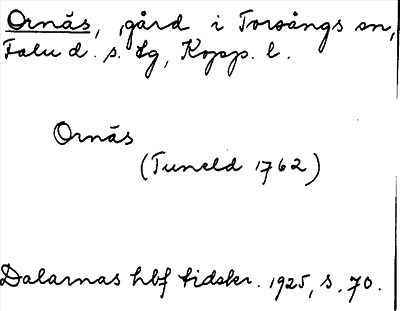 Ornäs, gård i Torsångs sn,
Falu d. s. lg, Kopp. l.
Ornäs
(Tuneld 1762)
Dalarnas hbf tidskr. 1925, s. 70.